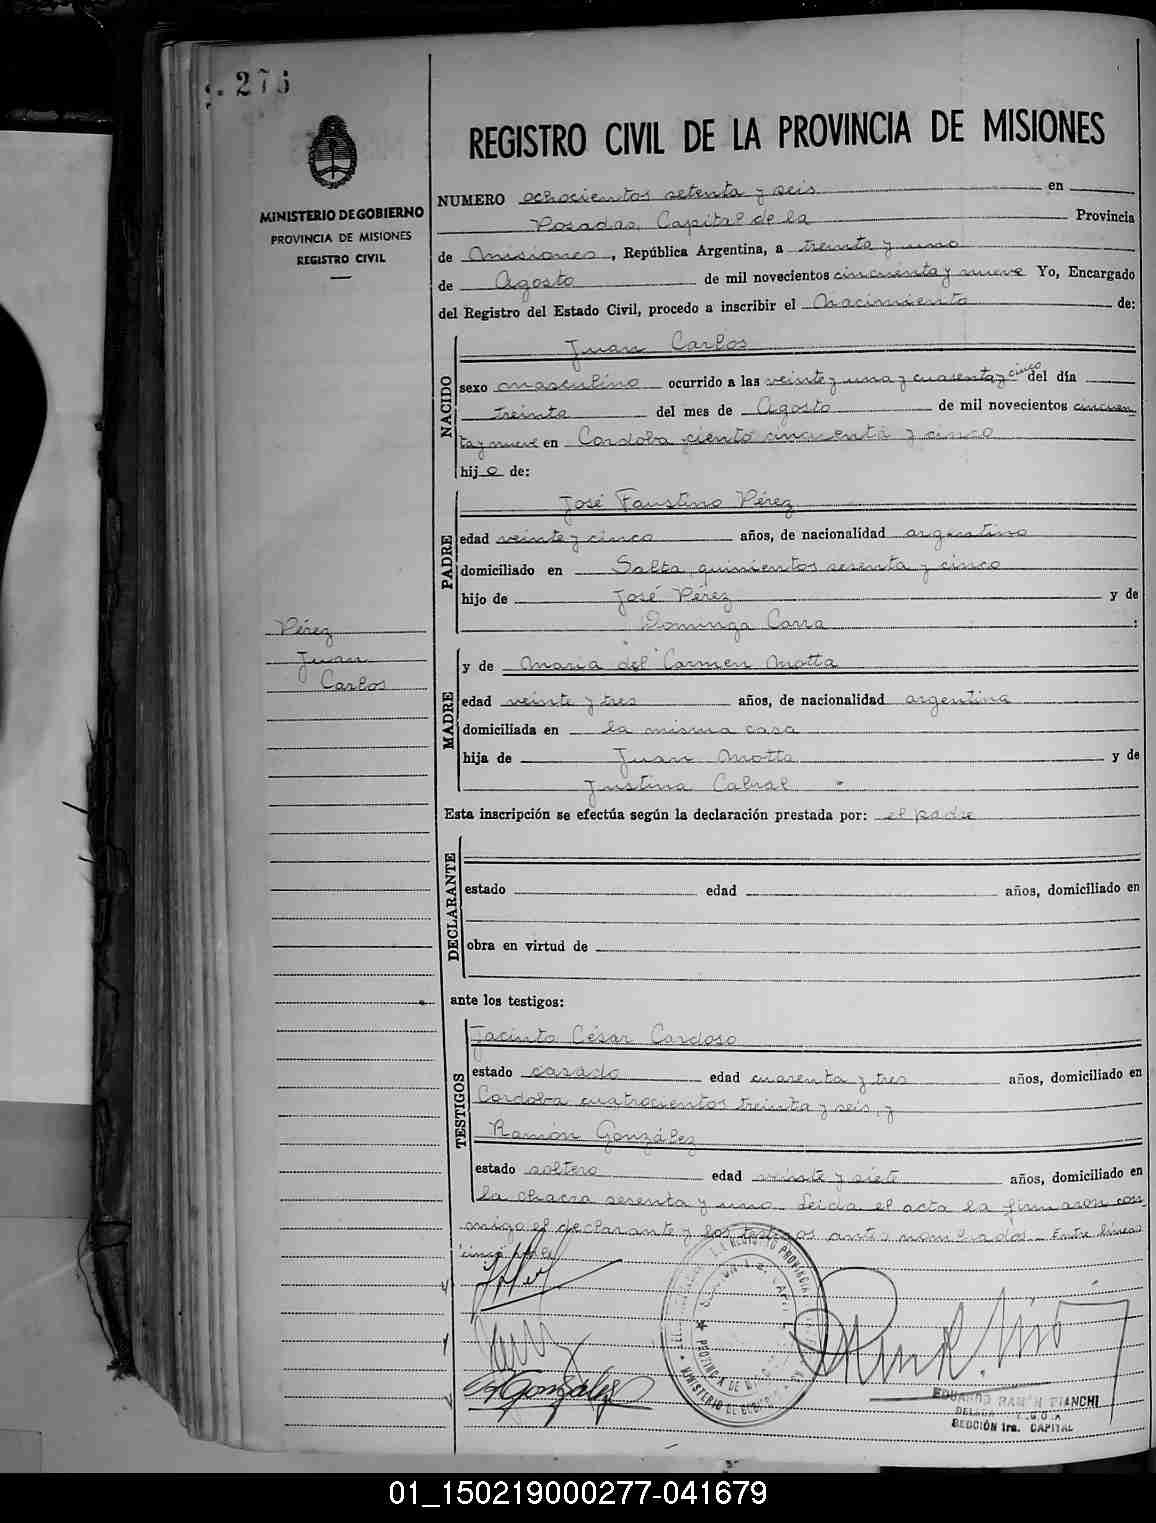 276
MINISTERIO DE GOBIERNO
PROVINCIA DE MISIONES
REGISTRO CIVIL
REGISTRO CIVIL DE LA PROVINCIA DE MISIONES
NUMERO ochocientos setenta y seis en
Posadas, Capital de la Provincia
de Misiones, República Argentina, a treinta y uno
de Agosto de mil novecientos cincuenta y nueve Yo, Encargado
del Registro del Estado Civil, procedo a inscribir el Nacimiento de:
NACIDO
Juan Carlos
sexo masculino ocurrido a las veinte y una y cuarenta y cinco del día
treinta del mes de Agosto de mil novecientos cincuen
ta y nueve en Cordoba ciento cincuenta y cinco
hijo de:
PADRE
José Faustino Pérez
edad veinte y cinco años, de nacionalidad argentino
domiciliado en Salta, quinientos sesenta y cinco
hijo de José Pérez y de
Dominga Carra :
Pérez
Juan
Carlos
MADRE
y de María del Carmen Motta
edad veinte y tres años, de nacionalidad argentina
domiciliada en la misma casa
hija de Juan Motta y de
Justina Cabral
Esta inscripción se efectúa según la declaración prestada por: el padre
DECLARANTE
estado edad años, domiciliado en
obra en virtud de
ante los testigos:
TESTIGOS
Jacinto César Cardoso
estado casado edad cuarenta y tres años, domiciliado en
Cordoba cuatrocientos treinta y seis, y
Ramón González
estado soltero edad veinte y siete años, domiciliado en
la chacra sesenta y uno. Leida el acta la firmaron con
migo el declarante y los testigos antes nombrados. Entre lineas
"cinco" vale
González
MINISTERIO DE GOBIERNO
PROVINCIA DE
REGISTRO PROVINCIAL
EDUARDO RAMÓN BIANCHI
SECCIÓN 1ra. CAPITAL
01_150219000277-041679